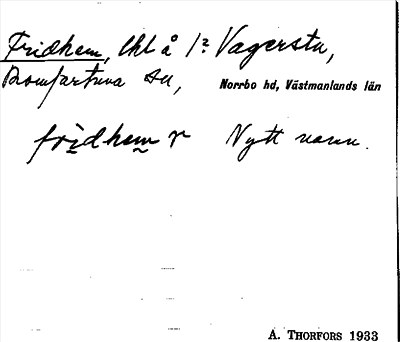 Fridhem, lht å 1:2 Vagersta,
Romfartuna sn, Norrbo hd, Västmanlands län
fridhem r Nytt namn.
A. THORFORS 1933